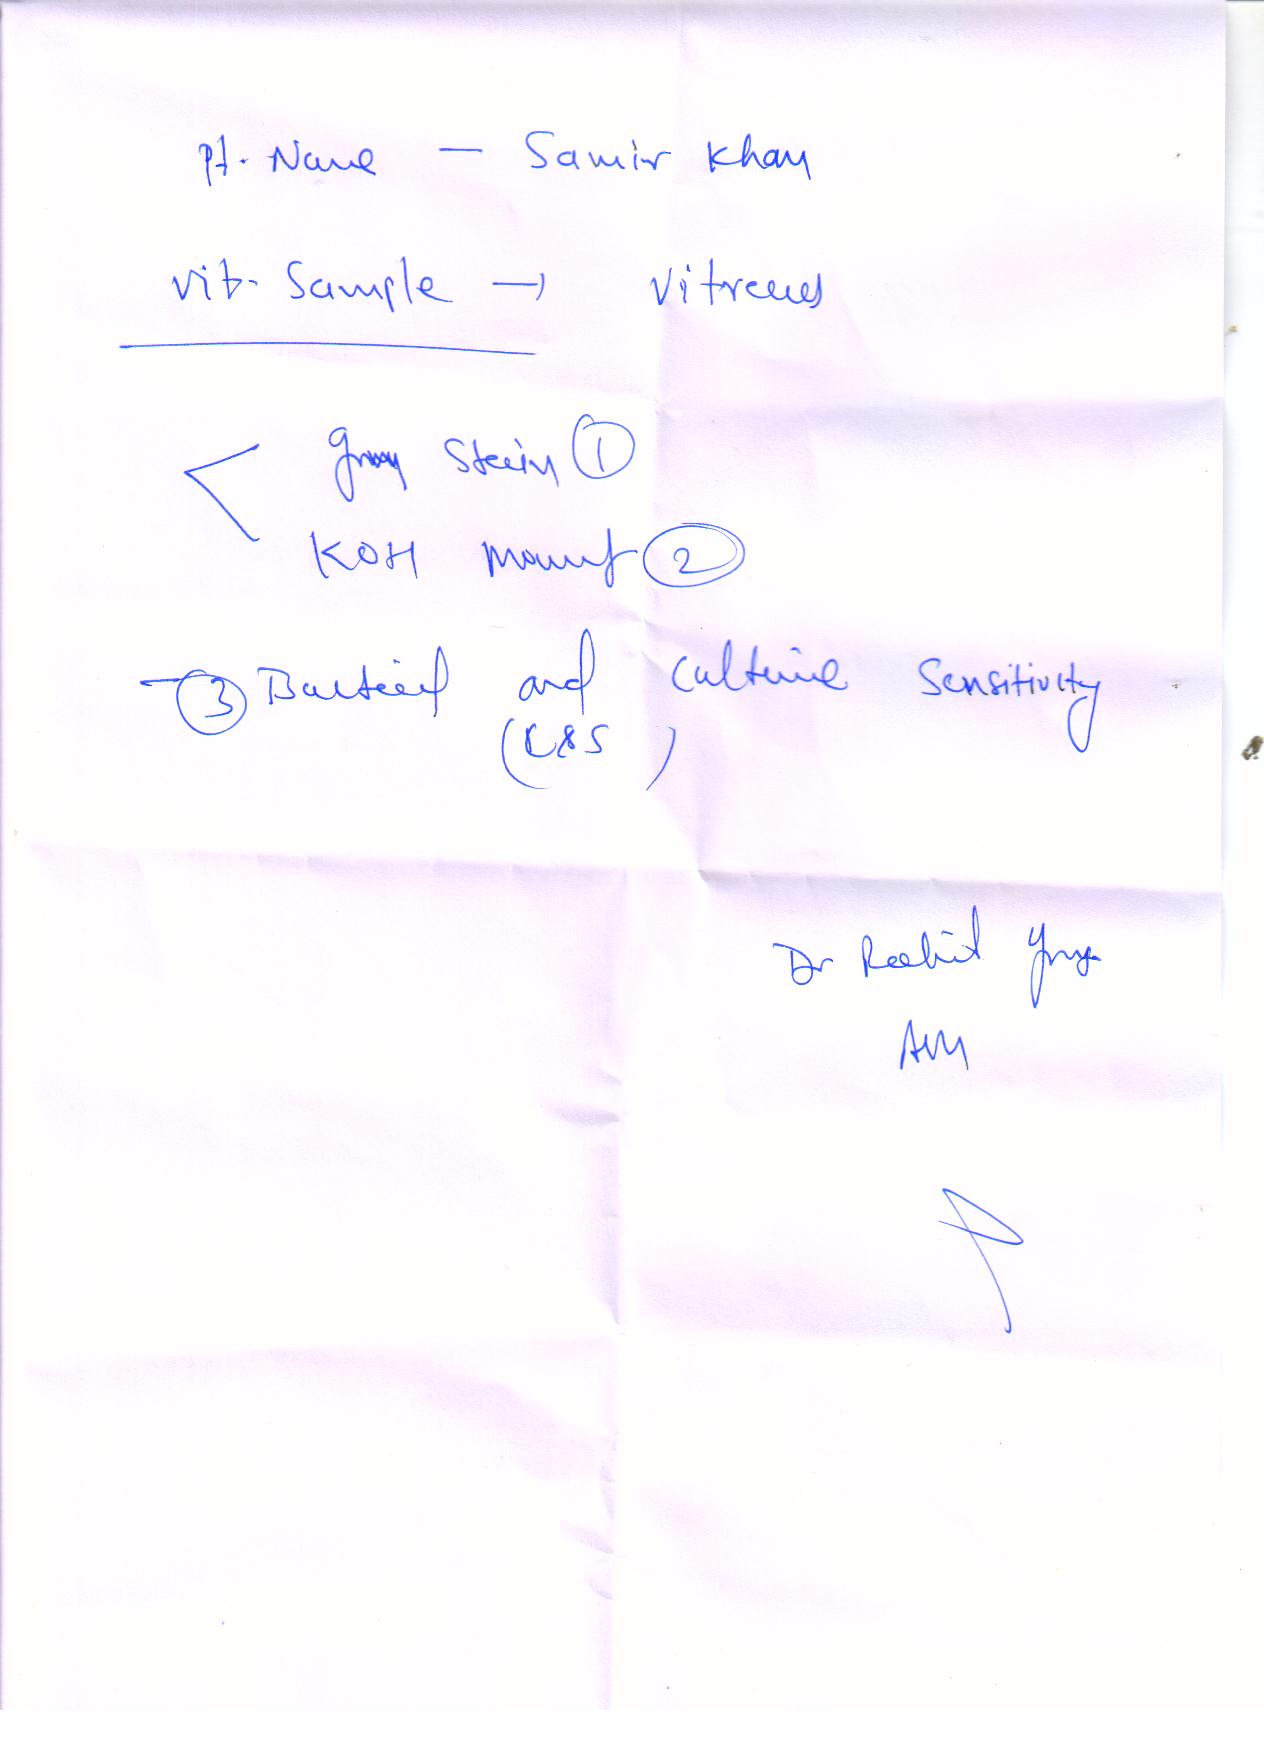 Pt. Name — Samir Khan
Vit. Sample → Vitreous
Gram Stain ①
KOH Mount ②
③ Bacterial and Culture Sensitivity
(C&S)
Dr